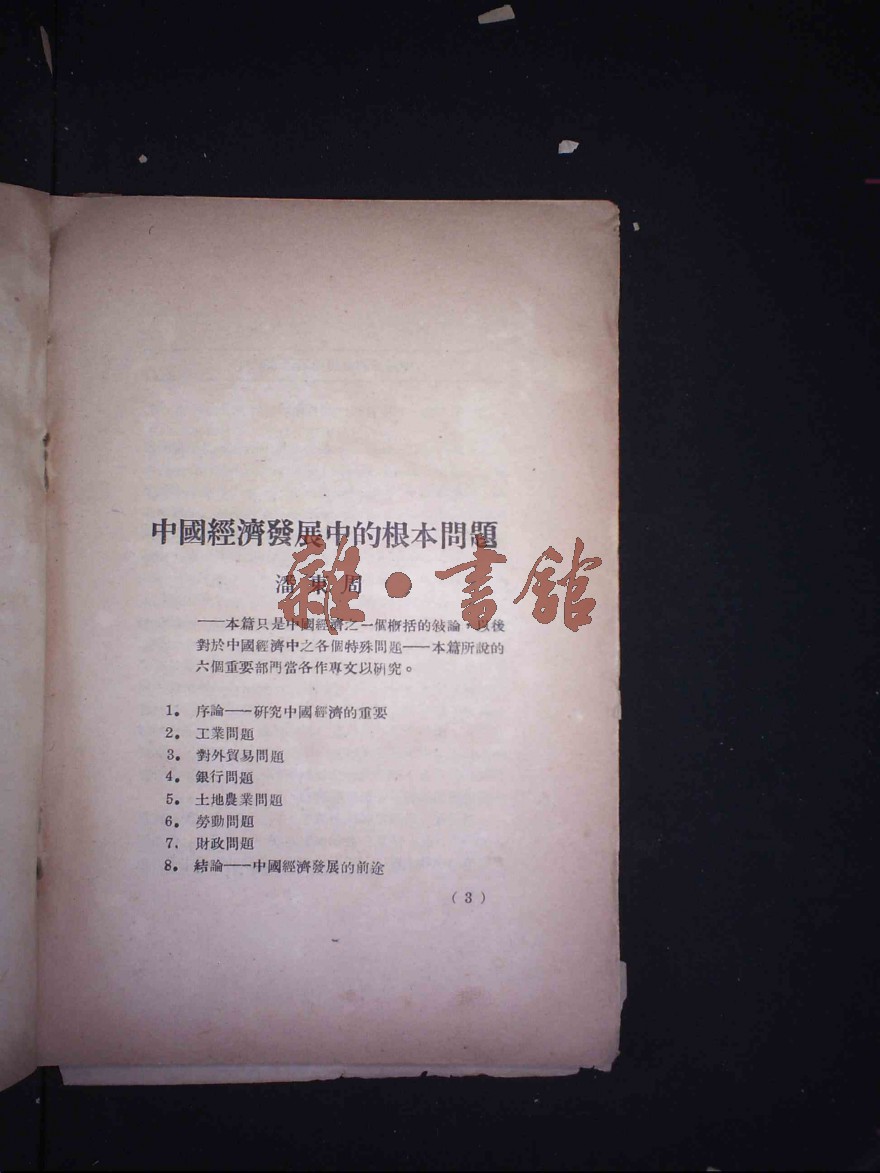 中國經濟發展中的根本問題
潘東周
雜·書館
——本篇只是中國經濟之一個概括的敍論，以後
對於中國經濟中之各個特殊問題——本篇所說的
六個重要部門當各作專文以硏究。
1。 序論——硏究中國經濟的重要
2。 工業問題
3。 對外貿易問題
4。 銀行問題
5。 土地農業問題
6。 勞動問題
7. 財政問題
8。 結論——中國經濟發展的前途
（3）